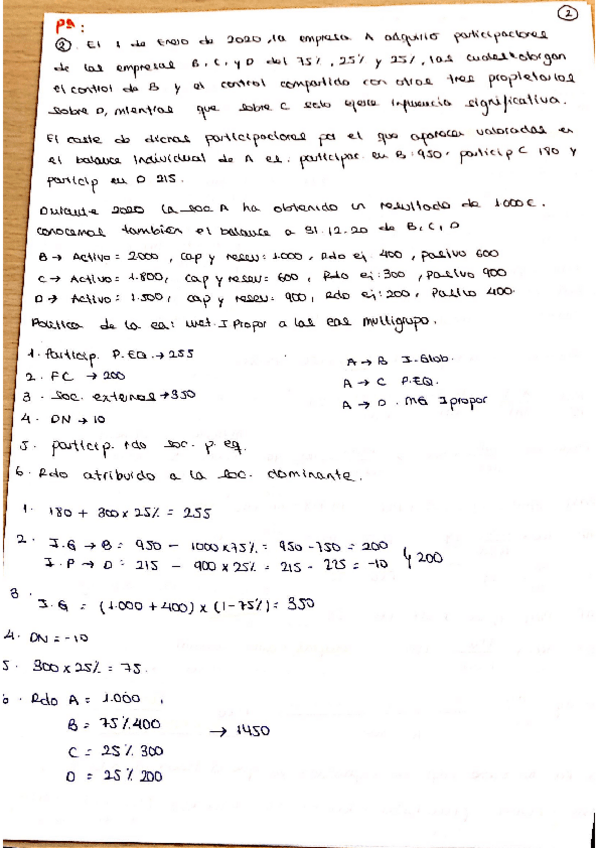 2
P2:
2. El 1 de Enero de 2020, la empresa A adquirió participaciones
de las empresas B, C, y D del 75%, 25% y 25%, las cuales otorgan
el control de B y el control compartido con otros tres propietarios
sobre D, mientras que sobre C solo ejerce influencia significativa.
El coste de dichas participaciones por el que aparecen valoradas en
el balance individual de A es: particip. en B: 950, particip C 180 y
particip en D 215.
Durante 2020 la soc A ha obtenido un resultado de 1000€.
Conocemos también el balance a 31.12.20 de B, C, D
B → Activo = 2000, cap y reserv: 1.000, Rdo ej: 400, pasivo 600
C → Activo = 1.800, cap y reserv = 600, Rdo ej: 300, pasivo 900
D → Activo = 1.500, cap y reserv: 900, Rdo ej: 200, Pasivo 400
Política de la ea: met. I Propor a las eas multigrupo.
1. Particip. P.EQ. → 255
A → B I. Glob.
2. FC → 200
A → C P.EQ.
3. Soc. externos → 350
A → D. MG I propor
4. DN → 10
5. particip. rdo soc. p. eq.
6. Rdo atribuido a la soc. dominante.
1. 180 + 300 x 25% = 255
2. I.G → B = 950 - 1000 x 75% = 950 - 750 = 200
I.P → D = 215 - 900 x 25% = 215 - 225 = -10
↳ 200
3.
I.G = (1.000 + 400) x (1-75%) = 350
4. DN = -10
5. 300 x 25% = 75.
6. Rdo A = 1.000
B = 75% 400
→ 1450
C = 25% 300
D = 25% 200